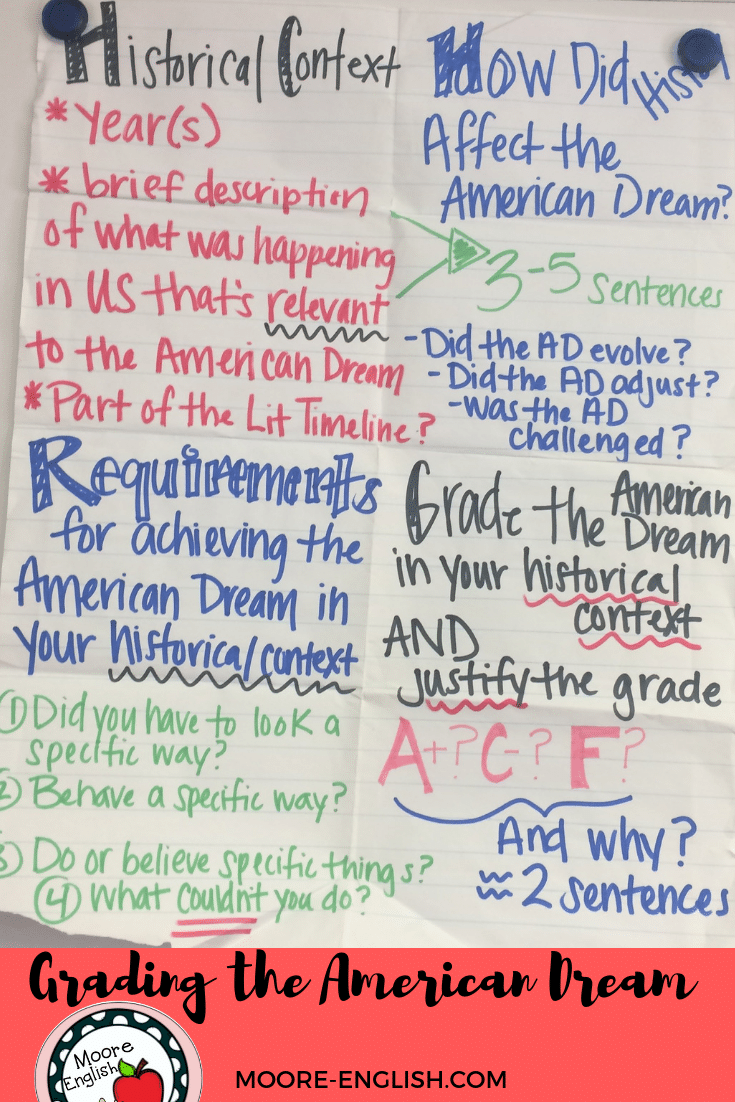 Historical Context
*Year(s)
* brief description
of what was happening
in US that's relevant
to the American Dream
*Part of the Lit Timeline?
How Did History
Affect the
American Dream?
3-5 Sentences
-Did the AD evolve?
-Did the AD adjust?
-Was the AD
challenged?
Requirements
for achieving the
American Dream in
your historical context
1) Did you have to look a
specific way?
2) Behave a specific way?
3) Do or believe specific things?
4) What couldn't you do?
Grade the American
Dream
in your historical
context
AND
justify the grade
A+? C-? F?
And why?
≈ 2 sentences
Grading the American Dream
Moore
English
MOORE-ENGLISH.COM